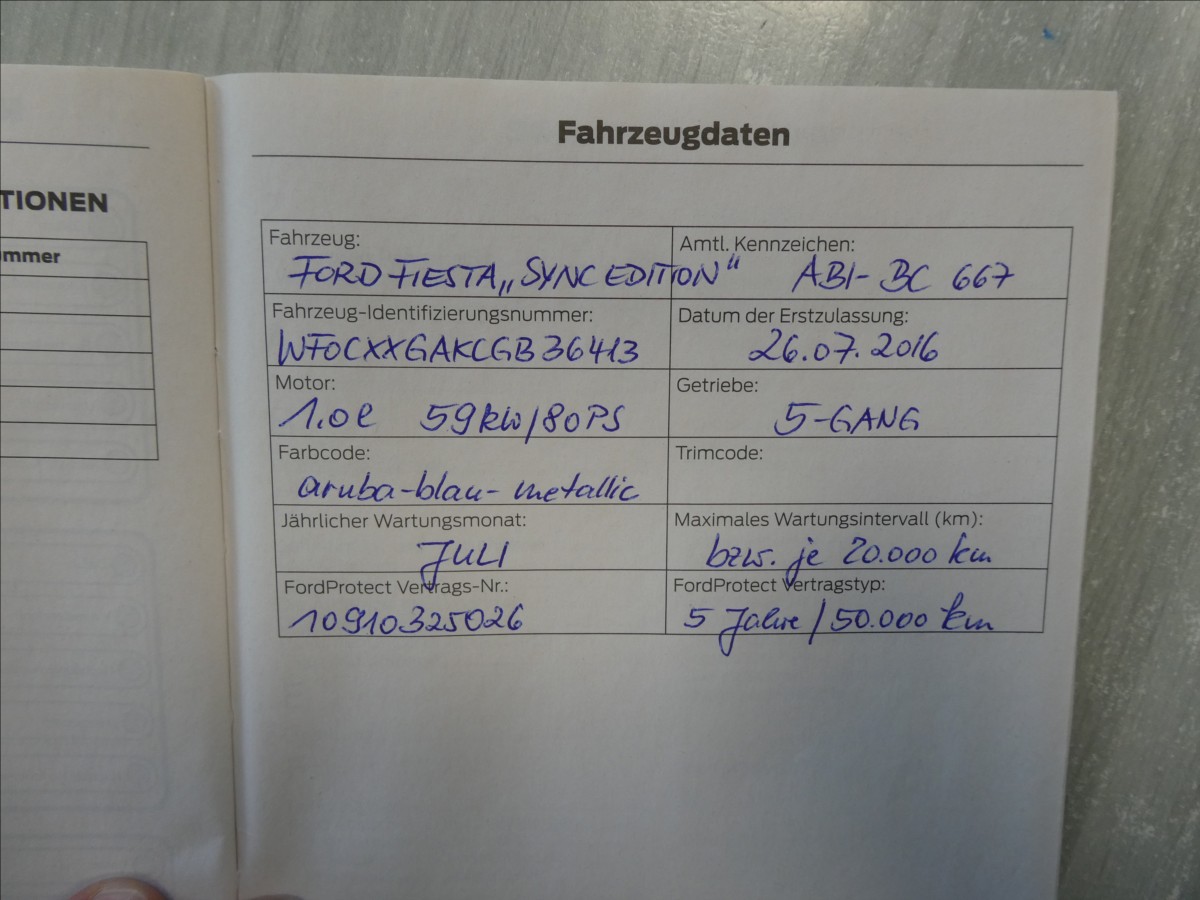 TIONEN
mmer
Fahrzeugdaten
Fahrzeug:
FORD FIESTA „SYNC EDITION“
Amtl. Kennzeichen:
ABI-BC 667
Fahrzeug-Identifizierungsnummer:
WF0CXXGAKCGB36413
Datum der Erstzulassung:
26.07.2016
Motor:
1.0l 59kW/80PS
Getriebe:
5-GANG
Farbcode:
aruba-blau-metallic
Trimcode:
Jährlicher Wartungsmonat:
JULI
Maximales Wartungsintervall (km):
bzw. je 20.000 km
FordProtect Vertrags-Nr.:
10910325026
FordProtect Vertragstyp:
5 Jahre/50.000 km